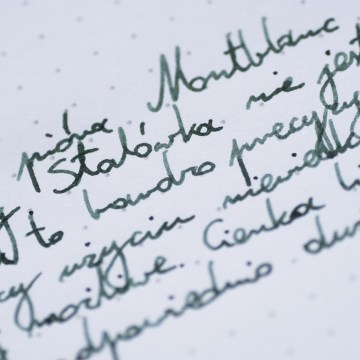 pióra Montblanc
Stalówka nie jest
to bardzo precyzy
cy użyciu niewielk
możliwe. Cienka li
odpowiednio du